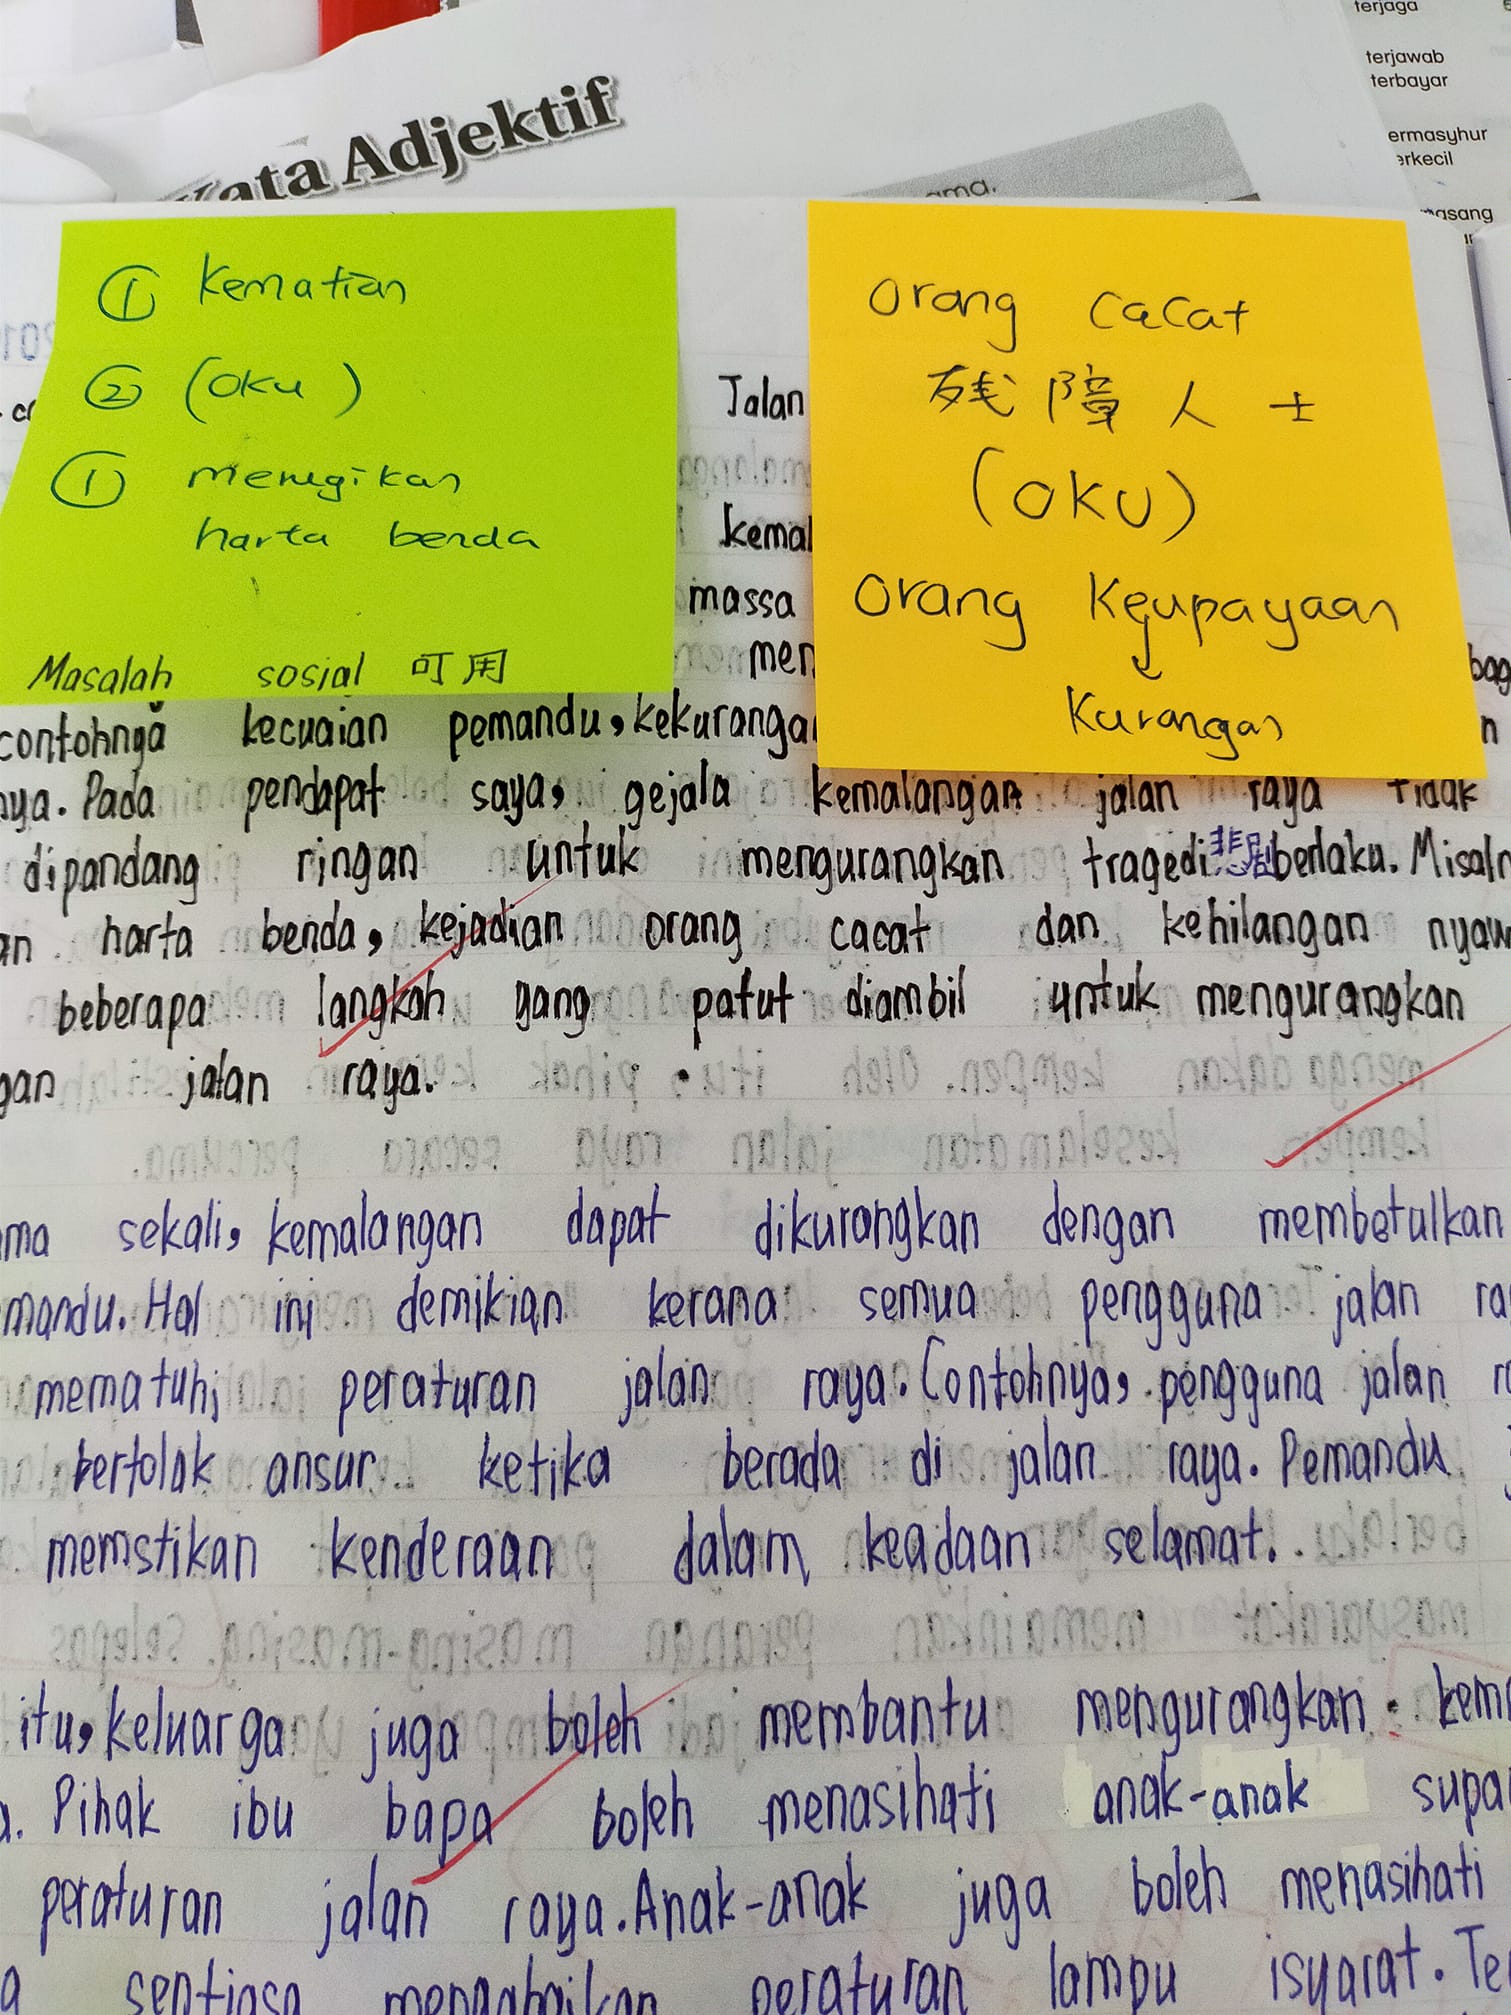 terjaga
terjawab
terbayar
ermasyhur
erkecil
asang
Kata Adjektif
ama.
① kematian
② (oku)
① merugikan
harta benda
Masalah sosial 可用
orang cacat
残障人士
(OKU)
orang Keupayaan
↓
Kurangan
Jalan
kemal
massa
men bag
contohnya kecuaian pemandu, kekurangan n
nya. Pada pendapat saya, gejala kemalangan jalan raya tidak
dipandang ringan untuk mengurangkan tragedi 悲剧 berlaku. Misaln
an harta benda, kejadian orang cacat dan kehilangan nyaw
beberapa langkah yang patut diambil untuk mengurangkan
gan jalan raya.
ma sekali, kemalangan dapat dikurangkan dengan membetulkan
mandu. Hal ini demikian kerana semua pengguna jalan ra
mematuhi peraturan jalan raya. Contohnya, pengguna jalan r
bertolak ansur ketika berada di jalan raya. Pemandu
memstikan kenderaan dalam keadaan selamat.
itu, keluarga juga boleh membantu mengurangkan kem
a. Pihak ibu bapa boleh menasihati anak-anak supa
peraturan jalan raya. Anak-anak juga boleh menasihati
a sentiasa mengabaikan peraturan lampu isyarat. Te